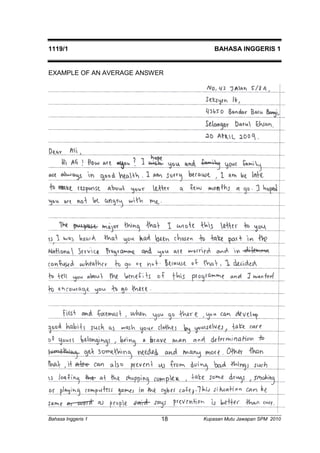 1119/1 BAHASA INGGERIS 1
EXAMPLE OF AN AVERAGE ANSWER
No. 43 Jalan 5/8A,
Seksyen 16,
43650 Bandar Baru Bangi,
Selangor Darul Ehsan.
20 APRIL 2009.
Dear Ali,
Hi Ali! How are you? I hope you and family your family
are always in good health. I am sorry because, I am be late
to make response about your letter a few months a go. I hoped
you are not be angry with me.
The purpose major thing that I wrote this letter to you
is I was heard that you had been chosen to take part in the
National Service Programme and you are worried and in dilemma
confused wheather to go or not. Because of that, I decided
to tell you about the benefits of this programme and I wanted
to encourage you to go there.
First and foremost, when you go there, you can develop
good habits such as wash your clothes by yourselves, take care
of yours belongings, bring a brave man and determination to
something get something needed and many more. Other than
that, it can also prevent us from doing bad things such
is loafing at the shopping complex, take some drugs, smoking
or playing computers games in the cyber cafe. This situation can be
same as people said says prevention is better than cure.
Bahasa Inggeris 1 18 Kupasan Mutu Jawapan SPM 2010